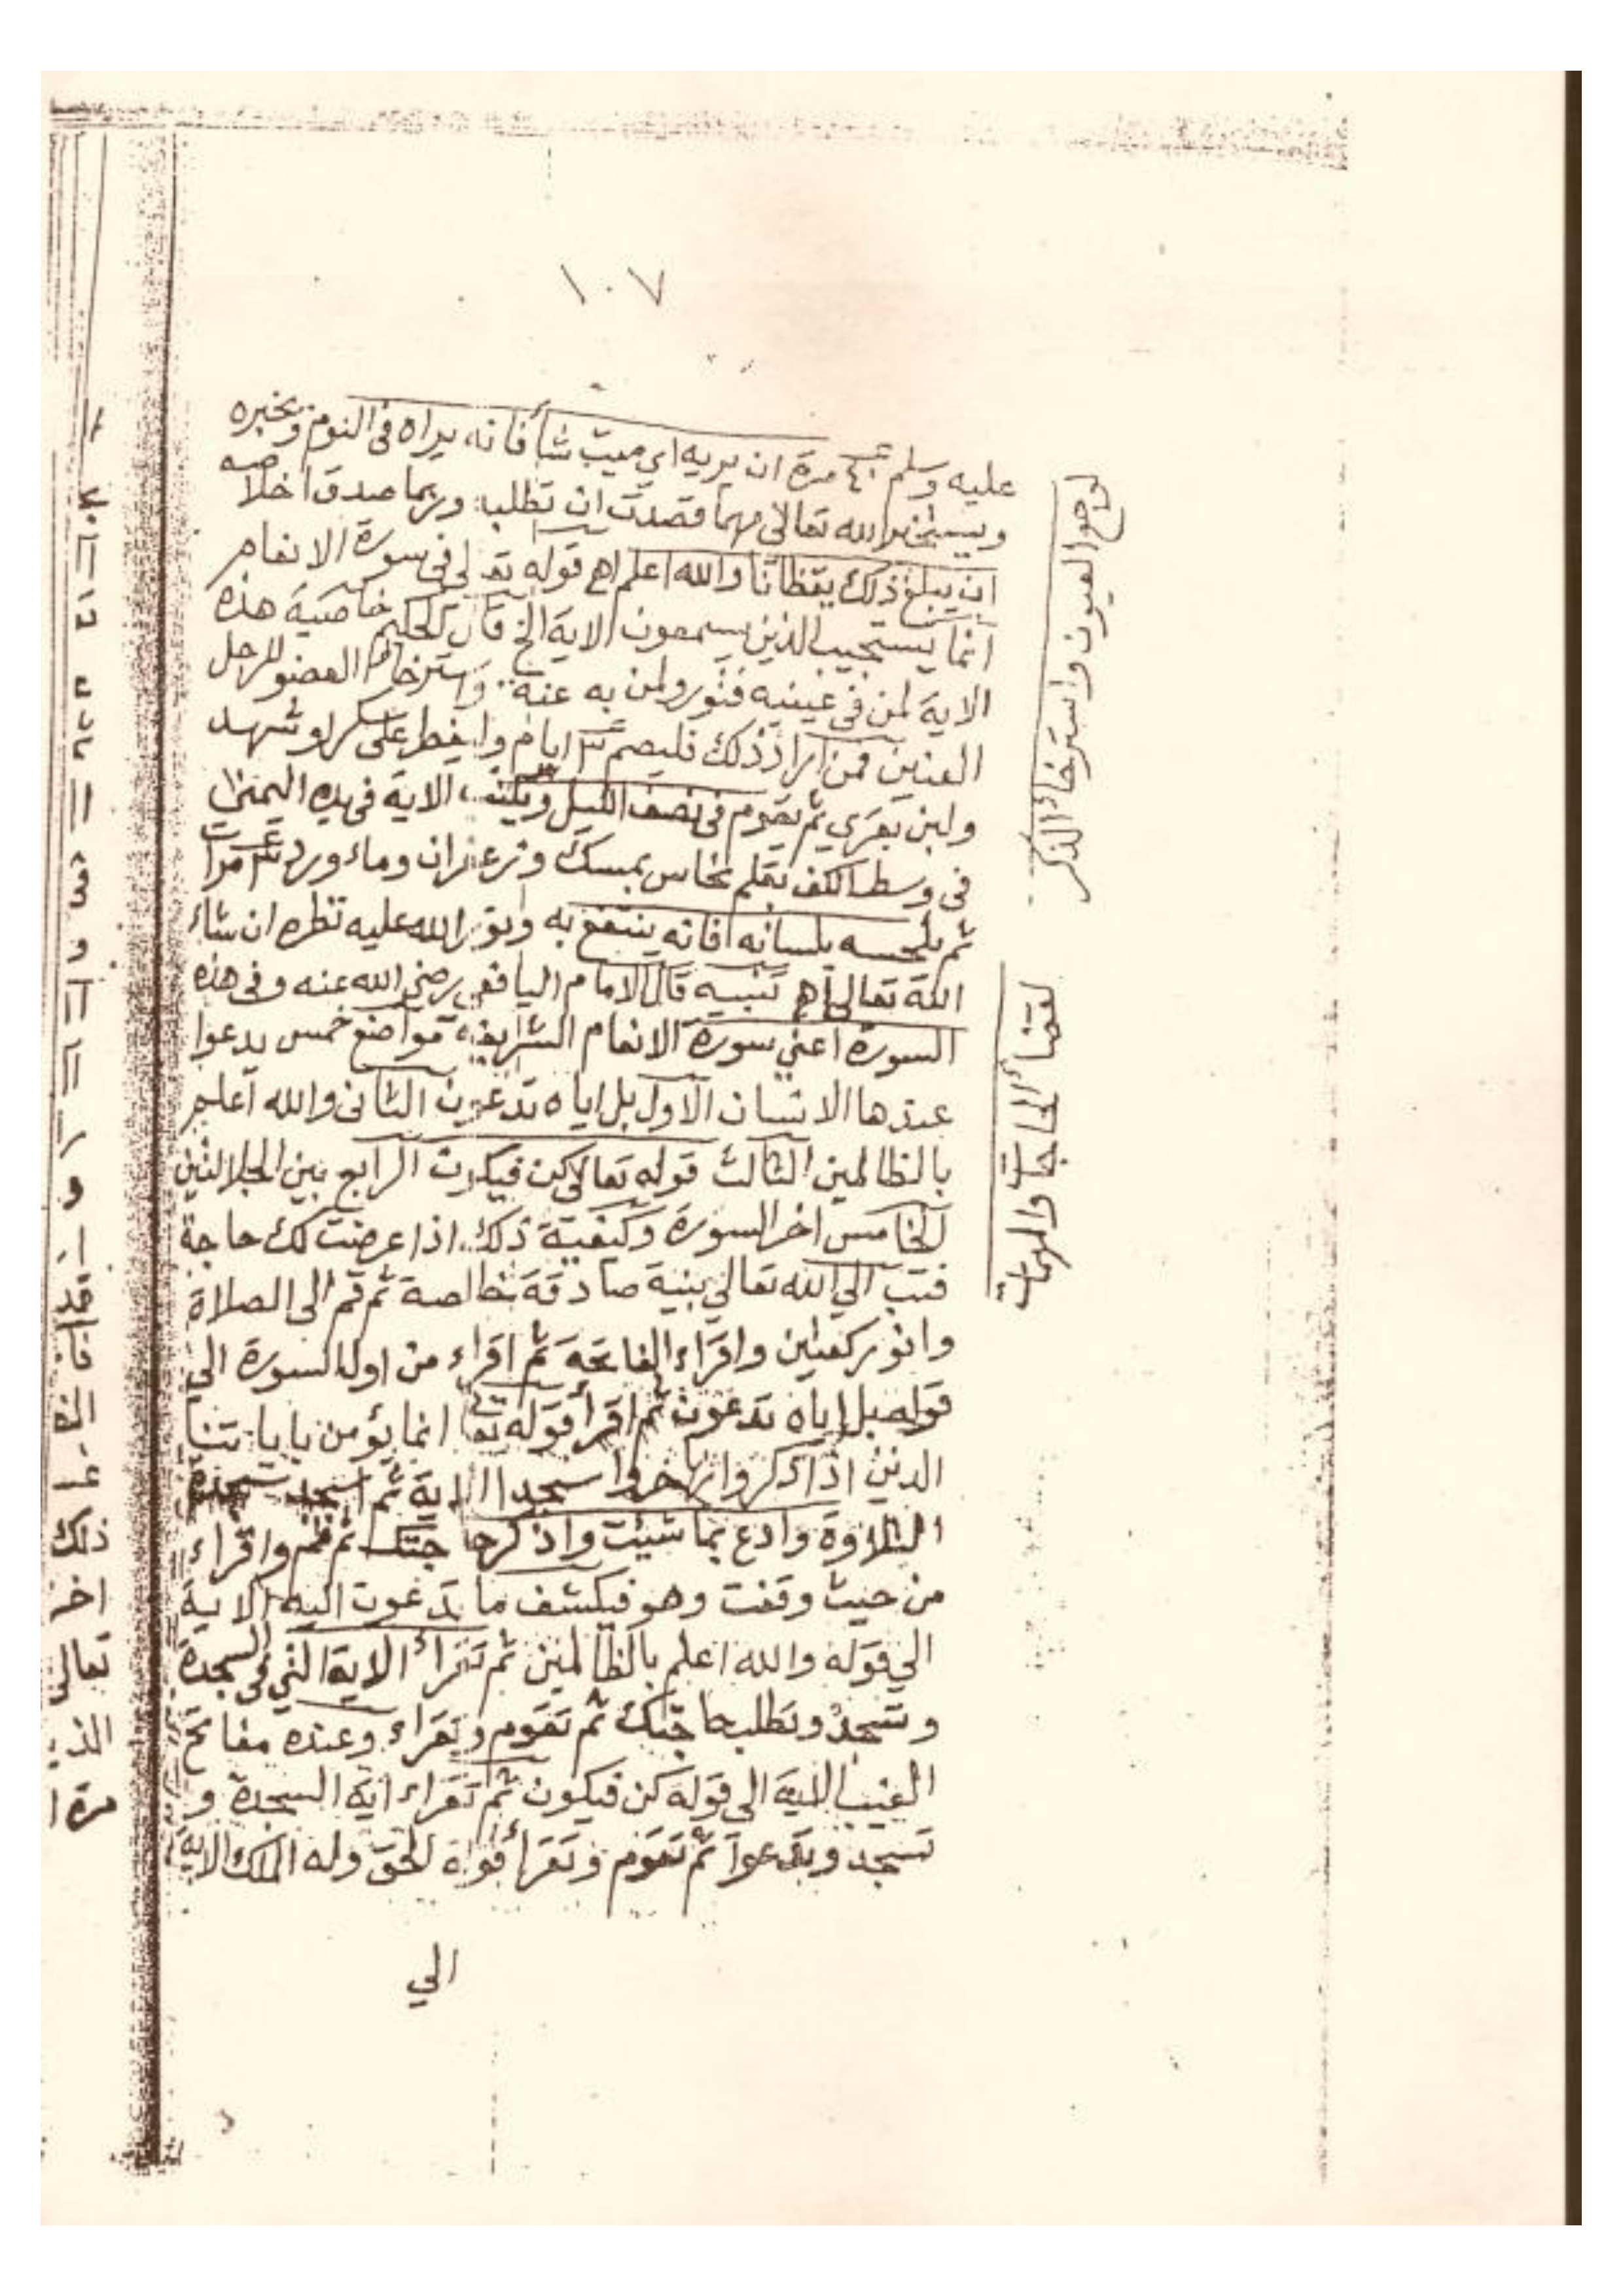 ١٠٧
عليه وسلم مرة ان يريه اي ميت شأ فانه يراه في النوم ويخبره
ويستخبر الله تعالى مهما قصدت ان تطلبه وربما صدق اخلاصه
ان يبلغ ذلك يقظانا والله اعلم اهـ قوله تعـ لى في سورة الانعام
انما يستجيب الذين يسمعون الاية الخ قال الحكيم خاصية هذه
الاية لمن في عينيه فتور ولمن به عنة واسترخاء العضو للرجل
العنين فمن اراد ذلك فليصم ٣ ايام وايفطر على سكر او شهد
ولبن بقري ثم يقوم في نصف الليل ويكتب الاية في يده اليمنى
في وسط الكف بقلم نحاس بمسك وزعفران وماء ورد ٣ مرات
ثم يلحسه بلسانه فانه ينتفع به ونور الله عليه نظره ان شاء
الله تعالى اهـ تنبيه قال الامام اليافعي رضي الله عنه وفي هذه
السورة اعني سورة الانعام الشريفة مواضع خمس يدعوا
عندها الانسان الاول بل اياه تدعون الثاني والله اعلم
بالظالمين الثالث قوله تعالى كن فيكون الرابع بين الجلالتين
الخامس اخر السورة وكيفية ذلك اذا عرضت لك حاجة
فتب الي الله تعالي بنية صادقة خالصة ثم قم الى الصلاة
وانو ركعتين واقراء الفاتحة ثم اقراء من اول السورة الي
قوله بل اياه تدعون ثم اقرأ قوله تعا انما يؤمن باياتنا
الذين اذا ذكروا بها خروا سجدا الاية ثم اسجد سجدة
التلاوة وادع بما شيئت واذكر حاجتك ثم قم واقراء
من حيث وقفت وهو فيكشف ما تدعون اليه الاية
الي قوله والله اعلم بالظالمين ثم تقراء الاية التي في السجدة
وتسجد وتطلب حاجتك ثم تقوم وتقراء وعنده مفاتح
الغيب الاية الى قوله كن فيكون ثم تقراء اية السجدة و
تسجد وتدعوا ثم تقوم وتقرأ قوله الحق وله الملك الاية
الي
لوجع العيون واسترخاء الذكر
لقضاء الحاجات والمهمات
ذلك
اخر
تعالى